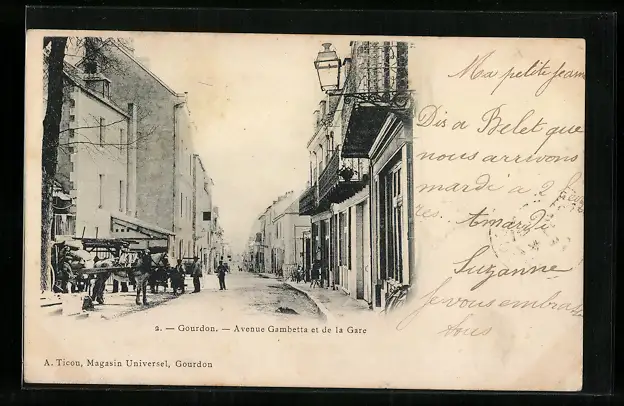 Ma petite Jeanne
Dis a Belet que
nous arrivons
mardi a 2 heu
res. A mardi
Suzanne
Je vous embrasse
tous
2. — Gourdon. — Avenue Gambetta et de la Gare
A. Ticou, Magasin Universel, Gourdon